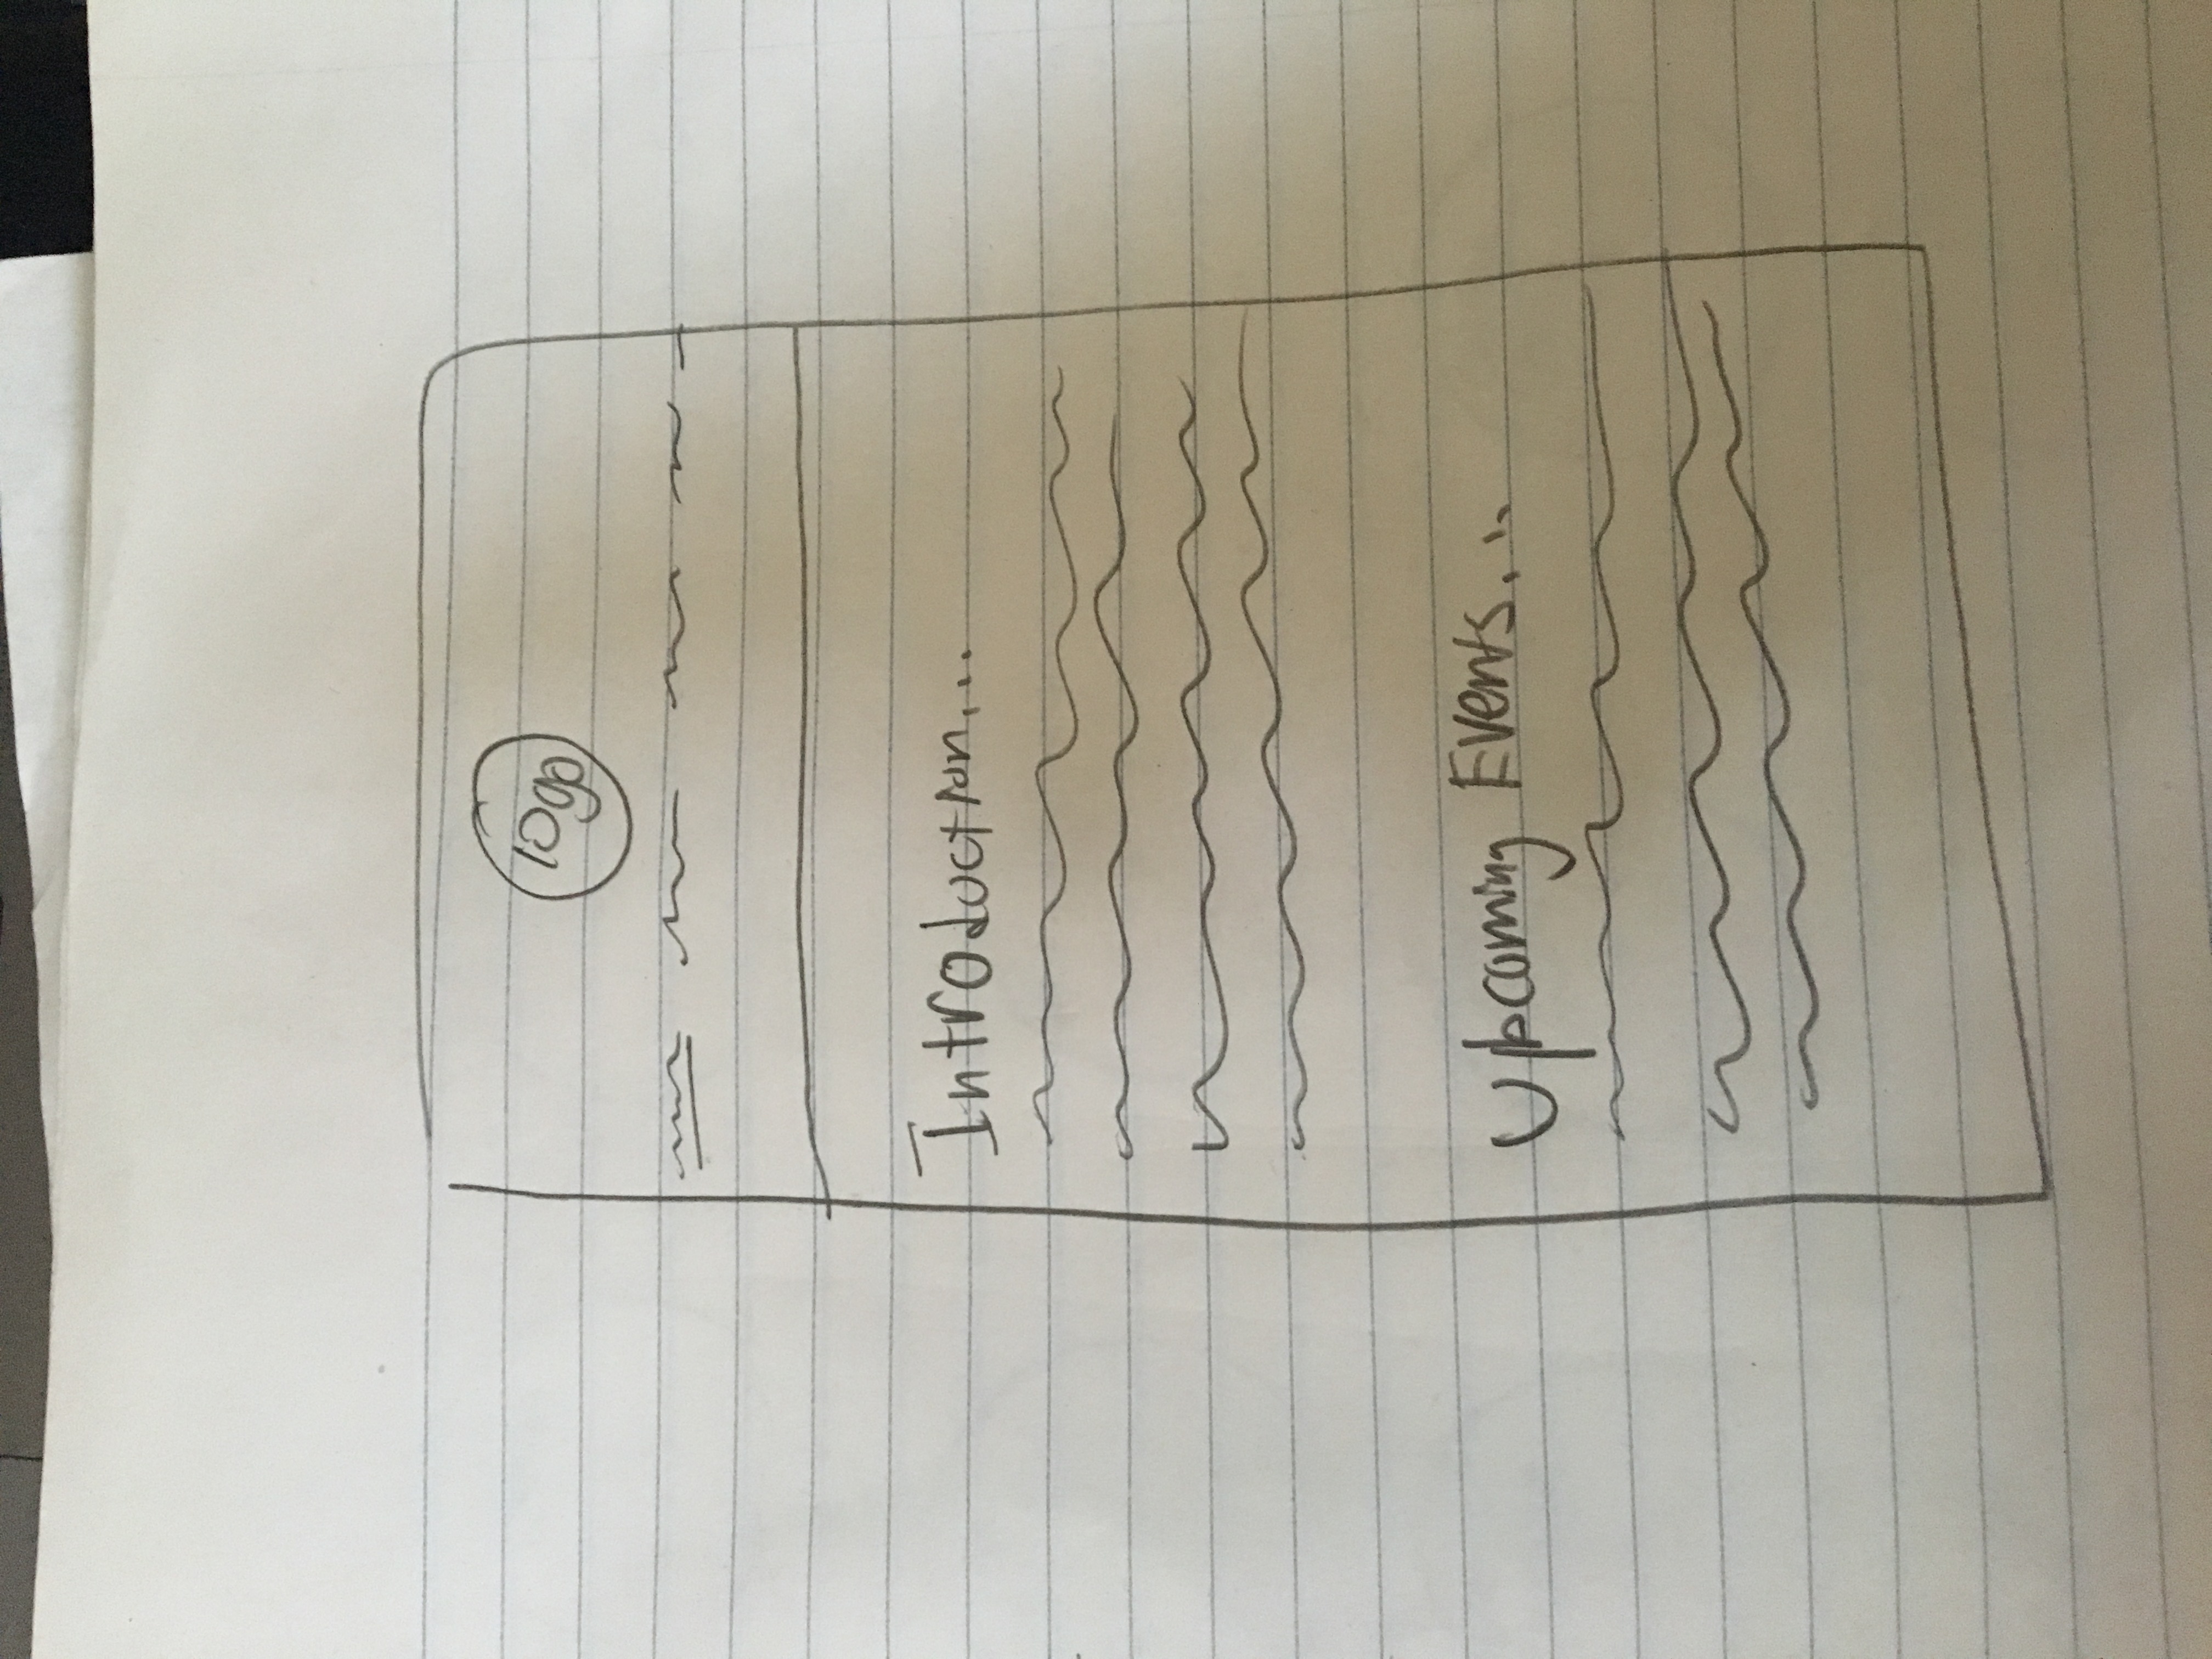 logo
Introduction...
Upcoming Events...